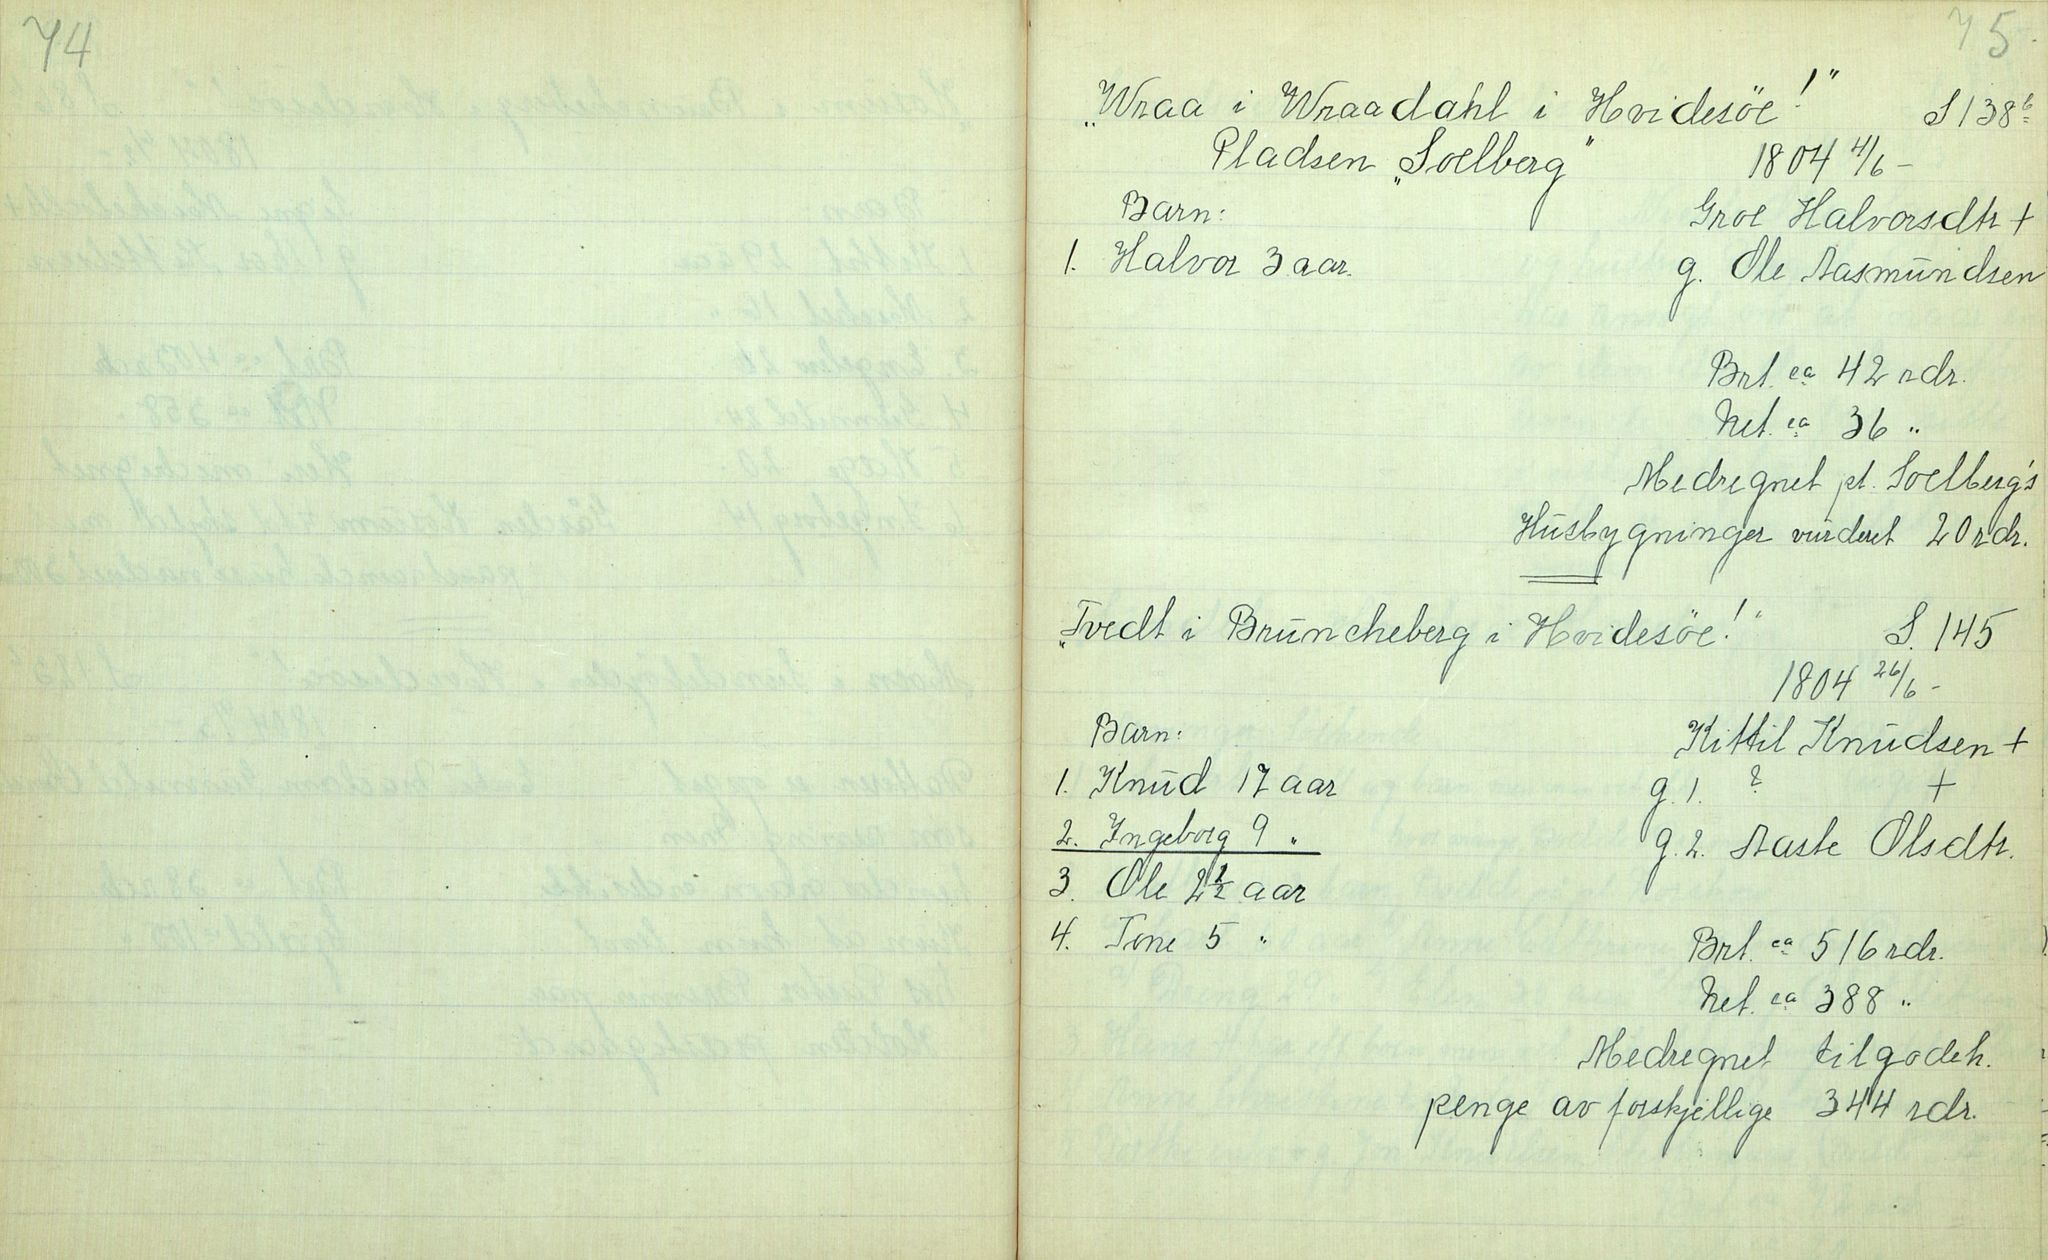 74
75
„Wraa i Wraadahl i Hvidesöe!" S 138b
Pladsen „Soelberg" 1804 4/6 -
Barn: Groe Halvorsdtr +
1. Halvor 3 aar. g. Ole Aasmūndsen
Brt. ca 42 rdr.
Net. ca 36 "
Medregnet pl. Soelberg's
Hūsbygninger vūrderet 20 rdr.
„Tvedt i Brūncheberg i Hvidesöe!" S. 145
1804 26/6 -
Barn: Kittil Knūdsen +
1. Knūd 17 aar g. 1. ? +
2. Ingeborg 9 " g. 2. Aaste Olsdtr.
3. Ole 2 1/2 aar
4. Tone 5 " Brt. ca 516 rdr.
Net. ca 388 "
Medregnet tilgodeh.
penge av forskjellige 344 rdr.